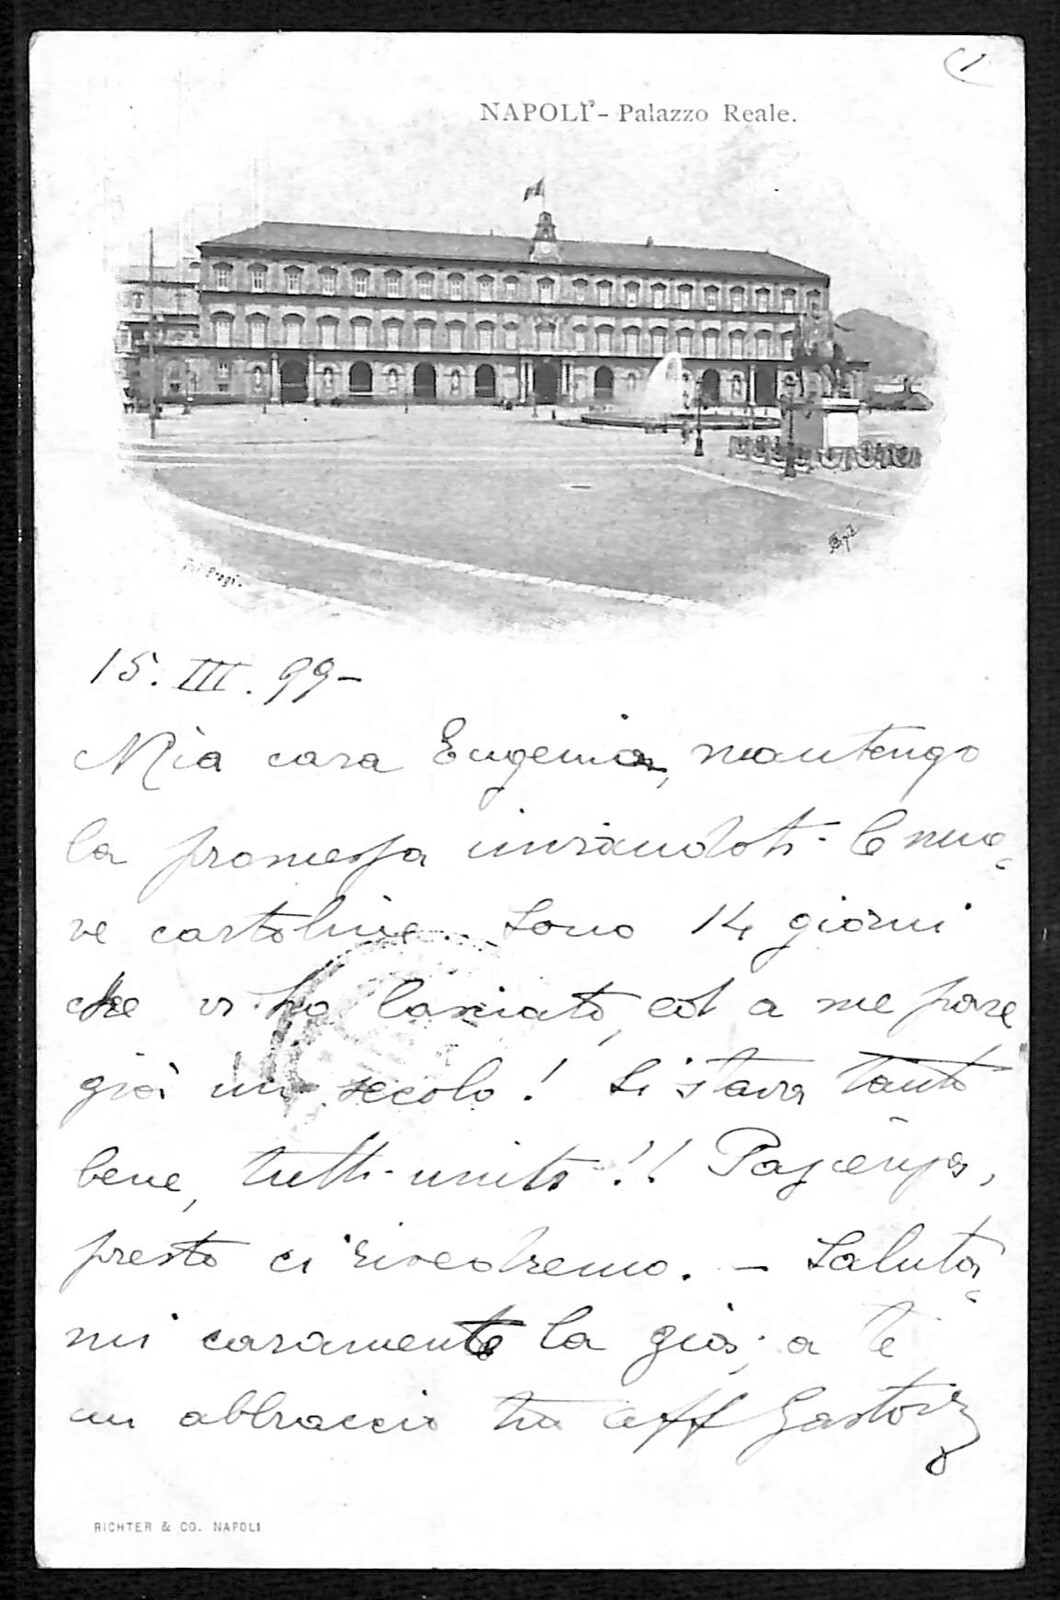 1
NAPOLI - Palazzo Reale.
15. III. 99-
Mia cara Eugenia, mantengo
la promessa inviandoti le nuo-
ve cartoline. Sono 14 giorni
che vi ho lasciato, ed a me pare
già un secolo! Si stava tanto
bene, tutti uniti!! Pazienza,
presto ci rivedremo. - Saluta-
mi caramente la già; a te
un abbraccio tuo aff
RICHTER & CO. NAPOLI